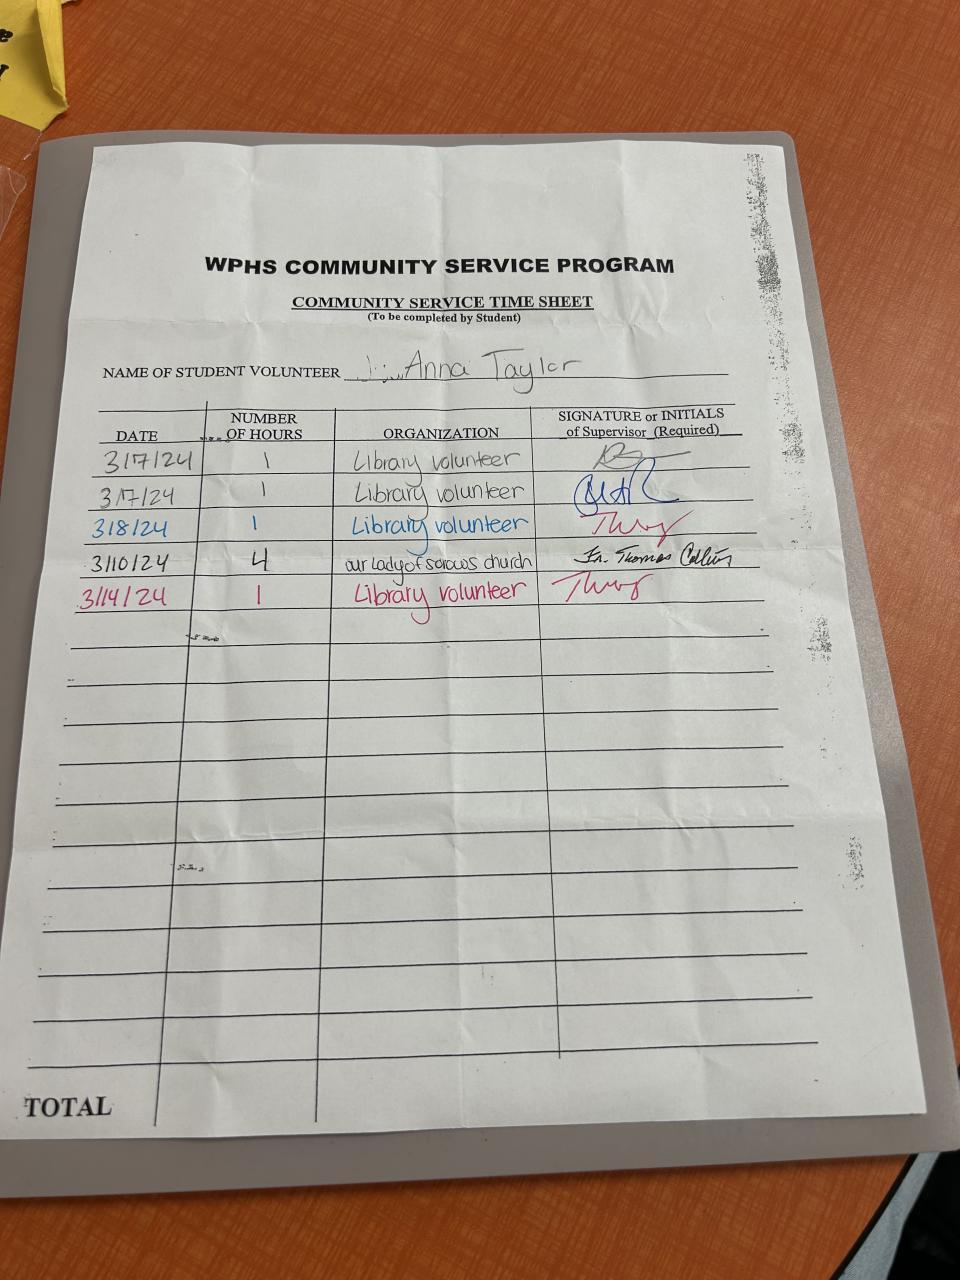 WPHS COMMUNITY SERVICE PROGRAM
COMMUNITY SERVICE TIME SHEET
(To be completed by Student)
NAME OF STUDENT VOLUNTEER Anna Taylor
DATE NUMBER OF HOURS ORGANIZATION SIGNATURE or INITIALS of Supervisor (Required)
3/7/24 1 Library volunteer
3/7/24 1 Library volunteer
3/8/24 1 Library volunteer
3/10/24 4 our Lady of sorows church Fr. Thomas Collins
3/14/24 1 Library volunteer
TOTAL